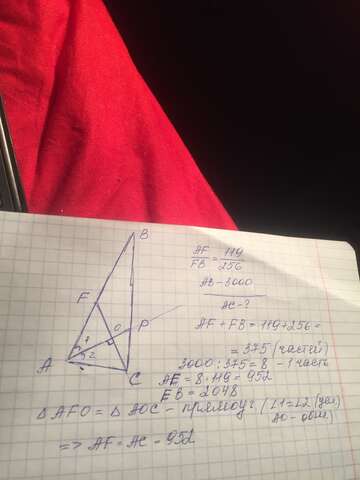 B
F
O
P
1
2
A
C
AF/FB = 119/256
AB - 3000
AC - ?
AF + FB = 119 + 256 =
= 375 (частей)
3000 : 375 = 8 - 1 часть
AF = 8 · 119 = 952
FB = 2048
△ AFO = △ AOC - прямоуг (∠1 = ∠2 (усл)
AO - общ)
=> AF = AC - 952